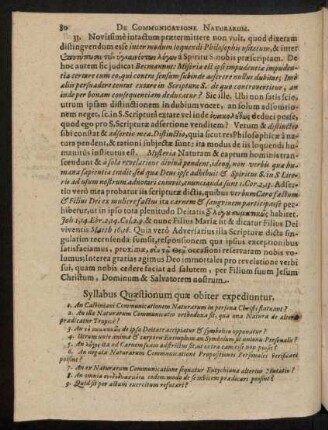 80 DE COMMUNICATIONE NATURARUM.
33. Novissimè intactum prætermittere non vult, quod dixeram
distingvendum esse inter modum loquendi Philosophis usitatum, & inter
à Spiritu S. nobis præscriptum. De
hoc autem sic judicat Becmannus: Misera est ipsi impudentia impuden-
tia cerone eum eo, qui contra sensum subinde asserere nollet dubitat; Imò
alius persvadere tentat extare in Scriptura S. de quo controvertitur, an
inde per bonam consequentiam deducatur? Sic ille. Ubi non satis scio,
utrum ipsam distinctionem in dubium vocet, an solum adsumtio-
nem neget, sc. in S. Scripturis extare vel inde deduci posse,
quod ego pro S. Scripturæ adsertione venditem? Verum & distinctio
sibi constat & adsertio mea. Distinctio, quia sicut res Philosophicæ à na-
tura pendent, & rationi subjectæ sunt; ita modus de iis loquendi hu-
manitùs institutus est. Mysteria Naturam & captum hominis tran-
scendunt & à sola revelatione divinâ pendent, ideoq; non verbis quæ hu-
mana sapientia tradit: sed quæ Deus ipse adhibuit & Spiritus S. in S. Lite-
ris ad usum nostrum adsueri convenit, annunciandæ sunt. 1. Cor. 2. 13. Adser-
tio verò mea probatur iis scripturæ dictis, quibus verbum Caro factum
& Filius Dei ex muliere factus ita carnem & sangvinem participasse per-
hibetur, ut in ipso tota plenitudo Deitatis habitet.
Joh. 1. 14. Ebr. 2. 14. Col. 2. 9. & nunc Filius Mariæ sit & dicatur Filius Dei
viventis Matth. 16. 16. Quia verò Adversarius illa Scripturæ dicta sin-
gulatim recensenda sumsit, responsionem qua ipsius exceptionibus
satisfaciamus, proximè, occasionem reservatam nobis vo-
lumus. Interea gratias agimus Deo immortales pro revelatione verbi
sui, quam nobis cedere faciat ad salutem, per Filium suum Jesum
Christum, Dominum & Salvatorem nostrum.
Syllabus Quæstionum quæ obiter expediuntur.
1. An Cæsiniani Communicationem Naturarum in persona Christi statuant?
2. An illa Naturarum Communicatio orthodoxa sit, quâ una Natura de alterâ
prædicatur Tropicè?
3. An τὸ de ipso Deitate accipiatur & symbolico opponatur?
4. Utrum unio animæ & corporis Exemplum an Symbolum sit unionis Personalis?
5. An λόγος ita ad Carnem suam adstrictus sit, ut extra eam esse non possit?
6. An negatâ Naturarum Communicatione Propositiones Personales verificari
possint?
7. An ex Naturarum Communicatione sequatur Eutychiana alterius Mutatio?
8. An omnia eodem modo de se invicem prædicari possint?
9. Quid sit per actum exercitum resutari?